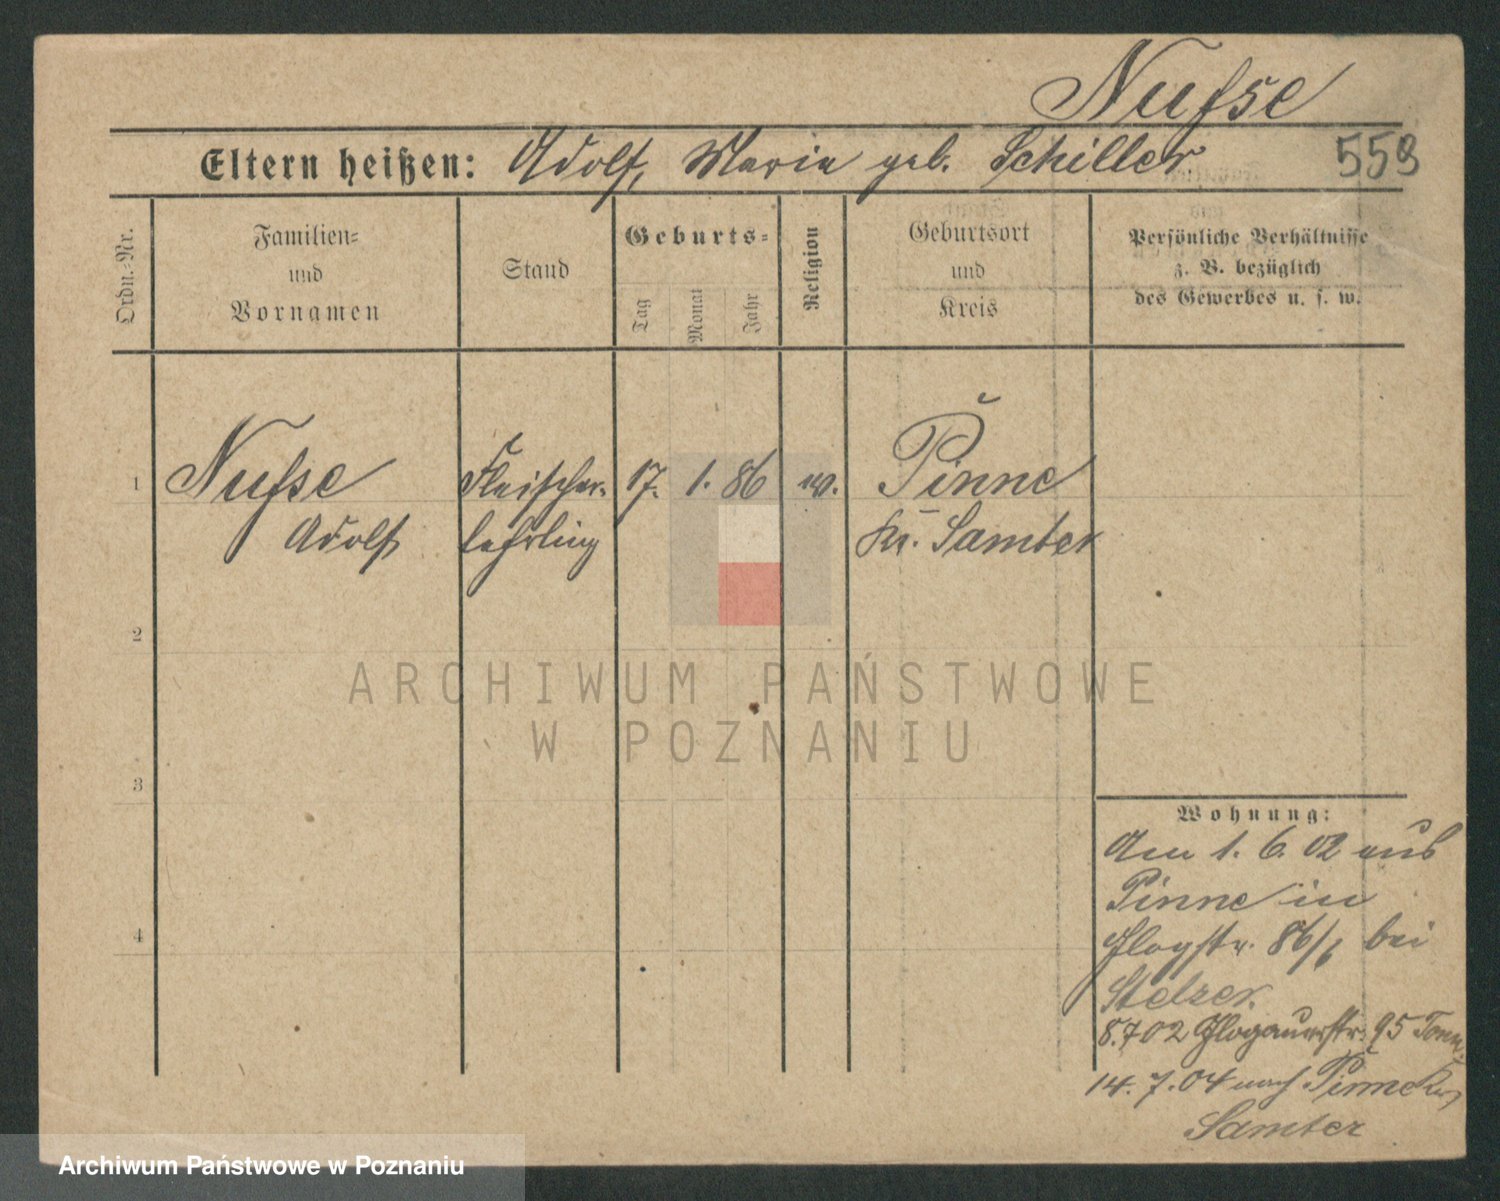 Nufse
Eltern heißen: Adolf, Maria geb. Schiller
559
Ordn.-Nr.
Familien-
und
Vornamen
Stand
Geburts-
Tag
Monat
Jahr
Religion
Geburtsort
und
Kreis
Persönliche Verhältnisse
z. B. bezüglich
des Gewerbes u. s. w.
1
Nufse
Adolf
Fleischer-
lehrling
17. 1. 86
ev.
Pinne
Kr. Samter
2
3
4
Wohnung:
Am 1. 6. 02 aus
Pinne in
Glogstr. 86/I bei
Stelzer.
8.7 02 Glogauerstr. 95
14. 7. 04 nach Pinne Kr.
Samter
ARCHIWUM PAŃSTWOWE
W POZNANIU
Archiwum Państwowe w Poznaniu